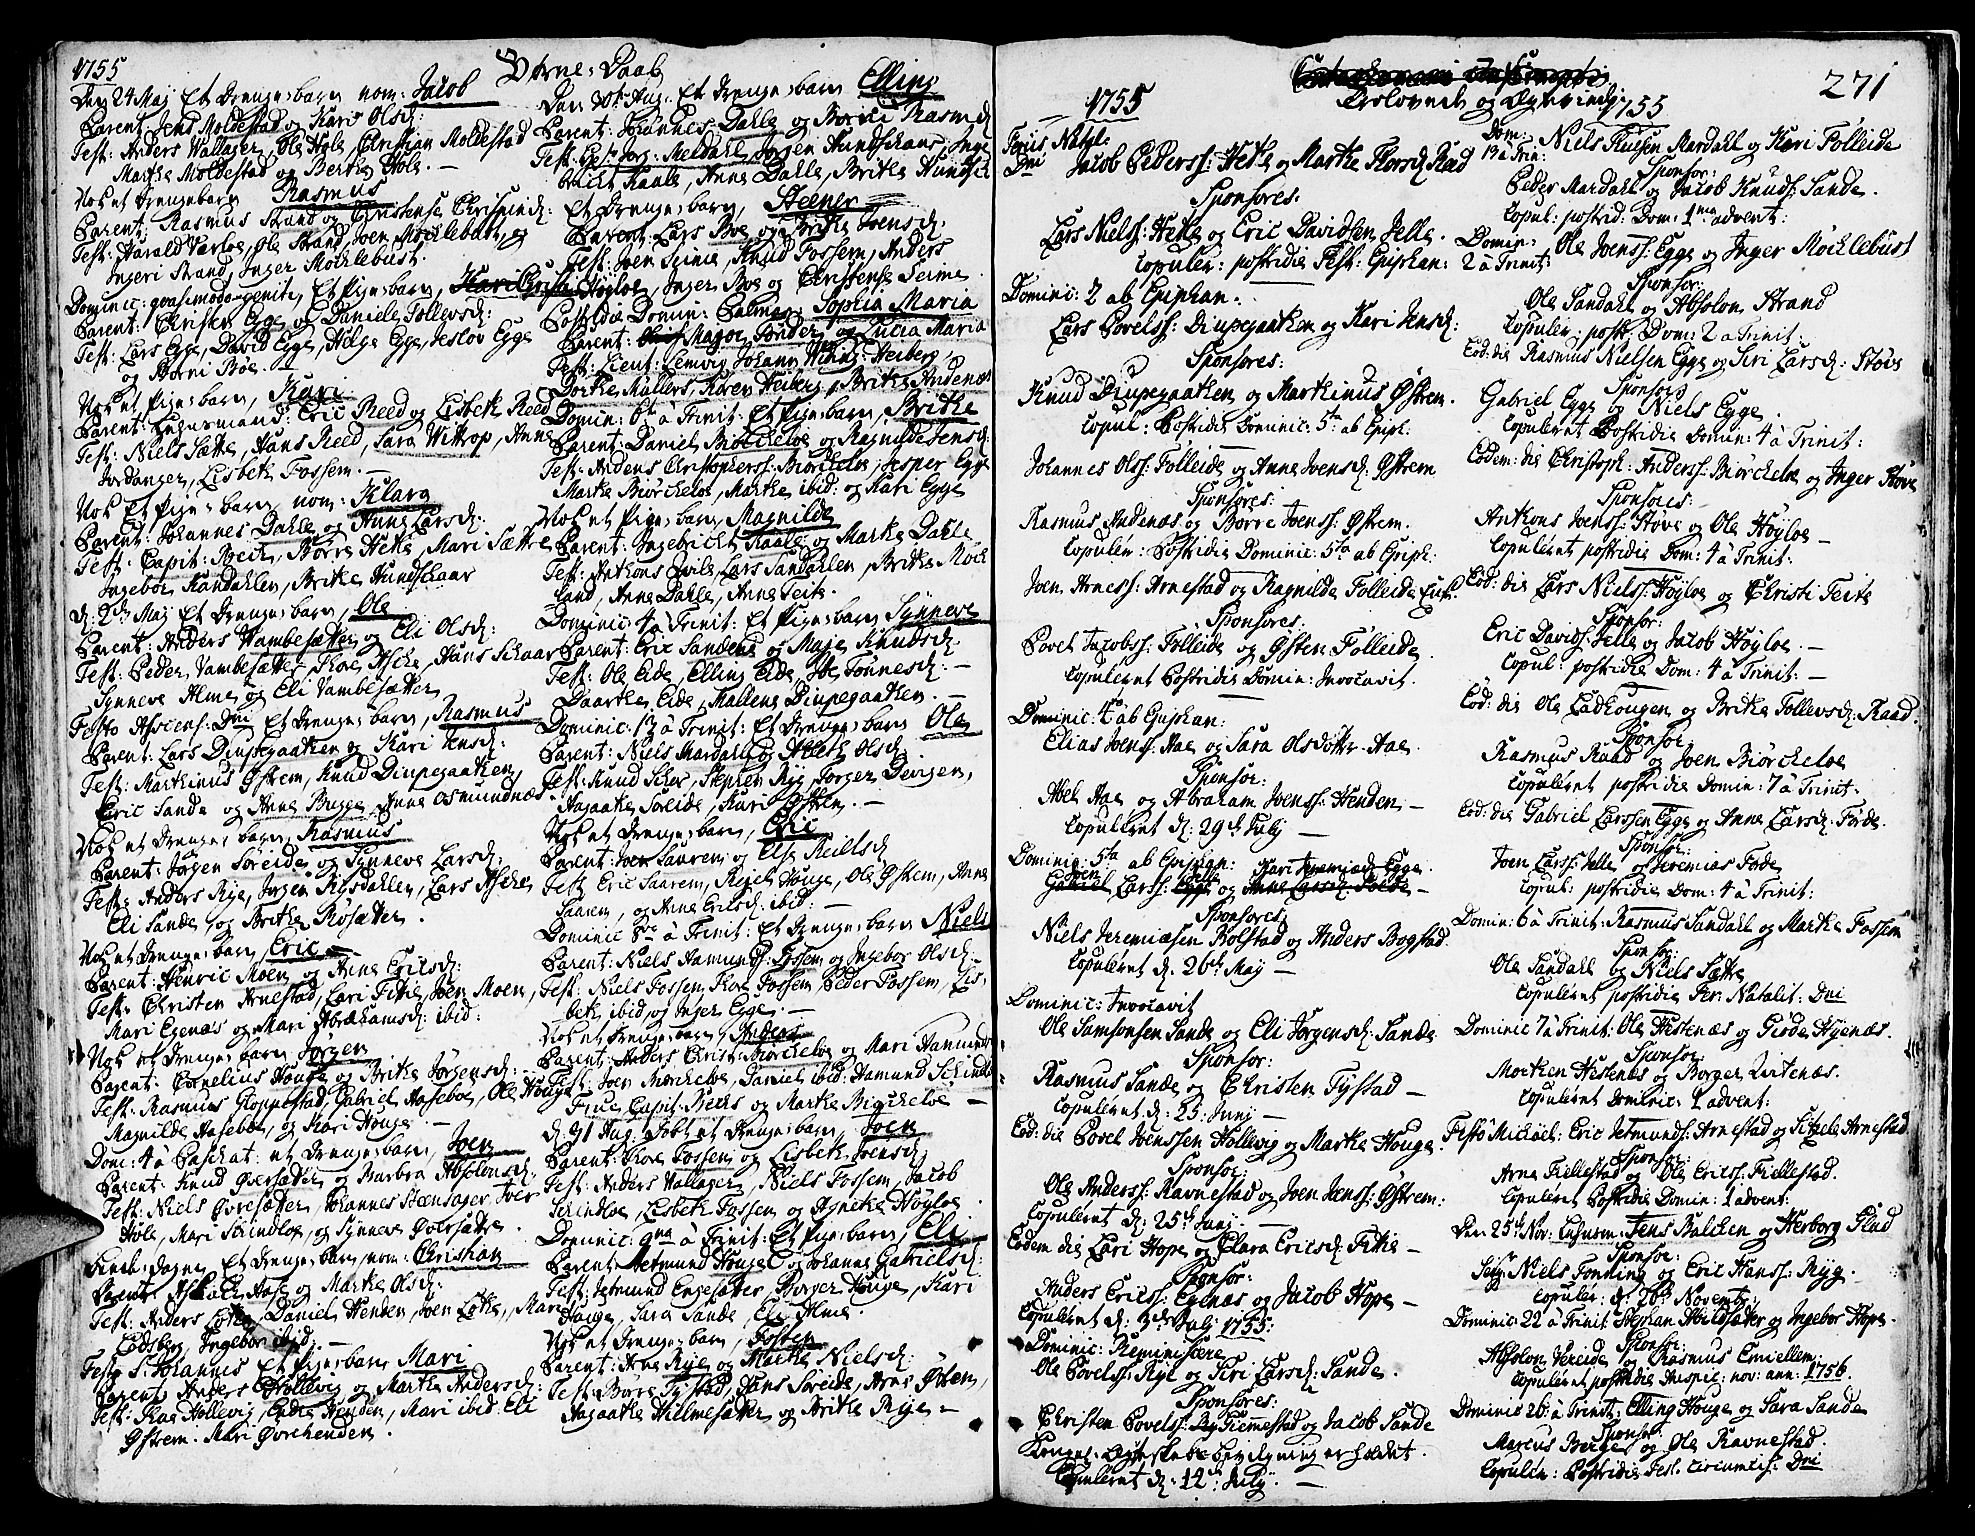 1755
Børne-Daab
Den 24 Maj Et Drenge-barn nom: Jacob
Parent: Jens Moldestad og Kari Olsd:
Test: Anders Wallager, Ole Hole Christian Moldestad
Marthe Moldestad og Berthe Hole. —
Nok et Drengebarn Rasmus
Parent: Rasmus Strand og Christense
Test: Harald Varloe, Ole Strand, Joen Mochlebust, og
Ingeri Strand, Inger Mochlebust.
Dominic: quasimodo-geniti, Et Pige-barn,
Parent: Christen Egge og Daniele Tollevsd:
Test: Lars Egge, David Egge, Helge Egge, Jeslov Egge
og Borni Boe.
Nok et Pige-barn, Kari
Parent: Eric Reed og Lisbeth Reed
Test: Niels Sætte, Hans Reed, Sara Wittrop, Anne
Jordanger, Lisbeth Fossem. —
Nok et Pige-barn nom: Klara
Parent: Johannes Dahle og Anne Larsd:
Test: Capit: Beck, Børre Hethe, Mari Sættre
Ingebor Sandahlen, Brithe Hundschaar
Maj Et Drenge-barn, Ole
Parent: Anders Wambesætter og Eli Olsd:
Test: Peder Vambesætter, Hans Schaar
Synneve Alme og Eli Vambesætter
Festo Ascens: Dni Et Drenge-barn, Rasmus
Parent: Lars Diupegaatken og Kari Jensd:
Test: Marthinus Østrem, Knud Diupegaatken,
Eric Sande og Anne Brigge, Anne Osmundnæs
Nok et Drenge-barn, Rasmus
Parent: Jørgen Søreide og Synneve Larsd:
Test: Anders Rye, Jørgen Lars
Eli Sande, og Brithe Røsæter.
Nok et Drenge-barn, Eric
Parent: Henric Moen og Anne Ericsd:
Test: Christen Arnestad, Lars Fitie, Joen Moen,
Mari Egenæs og Mari Abrahamsd: ibid:
Nok et Drenge-barn Jørgen
Parent: Cornelius Houge og Brithe Jørgensd:
Test: Rasmus Gloppestad, Gabriel Hasebøe, Ole Houge
Magnilde Hasebøe, og Kari Houge. —
Dom: 4 à Paschat: et Drenge-barn, Joen
Parent: Knud Øvresætter og Barbra Absolonsd:
Test: Niels Øvresætter, Johannes Steensager, Iver
Hole, Mari Scrindloe, og Synneve Øvresætte.
Et Drenge-barn, nom: Christian
Parent: Hase og Marthe Olsd:
Test: Anders Lothe, Daniel Henden, Joen Lothe, Mari
Edsberg, Ingebor ibid. —
Festo S: Johannis Et Pige-barn Mari
Parent: Anders Hollevig og Marthe Andersd:
Test: Hollevig, Endre Henden, Mari ibid: Eli
Østrem. Mari Øvrehenden.
Den 30th Aug. Et Drenge-barn Elling
Parent: Johannes Dahle og Borni Rasmd
Test: Jørg: Meldahl, Jørgen Hundschaar, Inge
bricht Kaale, Anne Dahle, Brithe Hundsch
Et Drenge-barn, Steener
Parent: Lars Boe og Brithe Joensd:
Test: Joen Seime, Knud Fossem, Anders
Høyloe, Inger Boe og Christense Seime
Postridie Domin: Palmar. Sophia Maria
Parent: Major og Lucia Maria
Test: Lieut: Lemvig Johann Heiberg,
Dorthe Møllers, Karen Heiberg, Brithe Andenæs
Domin: 6t à Trinit: Et Pige-barn, Brithe
Parent: Daniel Biørcheloe og Ragnilde Jensd:
Test: Andens Christophers: Biørcheloe, Jesper Egge
Marthe Biørcheloe, Marthe ibid: og Kari Egge
Nok et Pige-barn Magnilde
Parent: Ingebricht Kaale og Marthe Dahle
Test: Anthons Lars Sandahlen, Brithe Moch
land, Anne Dahle, Anne Teite.
Dominic 4ta Trinit: Et Pige-barn Synneve
Parent: Eric Sandene og Maje Knudsd:
Test: Ole Eide, Elling Eide, Tønnesd: —
Daarthe Eide, Mallene Diupegaatken. —
Dominic: 13 à Trinit: Et Drenge-barn Ole
Parent: Niels Mardahl og Olsd:
Test: Knud Scher, Stephen Rye, Jørgen Devigen,
Aagaathe Soreide, Kari Østen. —
Nok et Drenge-barn, Eric
Parent: Joen Saurem og Else Neilsd
Test Eric Saarem, Reiel Houge, Ole Østrem, Anne
Saarem, og Anne Ericsd: ibid: —
Dominic à Trinit: Et Drenge-barn Niels
Parent: Niels Hamunds: Fossem og Ingebor Olsd: —
Test: Niels Fossem, Thore Fossem, Peder Fossem, Lis-
beth ibid, og Inger Egge. —
Nok et Drenge-barn, Anders
Parent: Anders Christ: Biørcheloe og Mari Hamund
Test: Joen Biørcheloe, Daniel ibid: Hamund Schindlo
Frue Capit: Becks og Marthe Biørcheloe —
d: 31 Aug: Døbt et Drenge-barn, Joen
Parent: Thore Fossem og Lisbeth Joensd:
Test: Anders Wallager, Niels Fossem, Jacob
Scrindloe, Lisbeth Fossem og Agnethe Høyloe
Dominic 9na à Trinit: Et Pige-barn, Eli
Parent: Jetmund Houge og Johanne Gabrielsd:
Test: Jetmund Engesætter, Borger Houge, Kari
Houge, Sara Sande, Eli Alme
Nok et Drenge-barn, Josten
Parent: Arne Rye og Marthe Nielsd:
Test: Børre Tystad, Hans Soreide, Arne Østen,
Aagaathe Hillmesætter og Brithe Rye —
271
Trolovned og Egteviede
1755
1755
Feriis Natal:
Dni Jacob Peders: Hethe og Marthe Thorsd: Raad
Sponsores:
Lars Niels: Hethe og Eric Davidsen Jelle.
Copuler: postridie Fest: Epiphan:
Dominic: 2 ab Epiphan:
Lars Povels: Diupegaatken og Kari Jensd:
Sponsores:
Knud Diupegaatken og Marthinus Østrem.
Copul: Postridie Dominic: 5ta ab Epiph:
Johannes Ols: Folleide og Anne Joensd: Østrem
Sponsores:
Rasmus Andenæs og Børre Joens: Østrem.
Copuler: Postridie Dominic: 5ta ab Epiph:
Joen Arnes: Arnestad og Ragnilde Folleide
Sponsores:
Povel Jacobs: Folleide og Østen Folleide.
Copuleret Postridie Domin: Invocavit.
Dominic: 4ta ab Epiphan:
Elias Joens: Aae og Sara Olsdotter Aae.
Sponsor:
Abel Aae og Abraham Joens: Henden —
Copuleret d: 29de Julij —
Dominic: 5ta ab Epiphan: Kari Jeremiæd: Egge
Joen Lars: Jelle og —
Sponsores:
Niels Jeremiæsen Kolstad og Anders Bogstad.
Copuleret d. 26th Maij —
Dominic: Invocavit
Ole Samsonsen Sande og Eli Jørgensd: Sande
Sponsor:
Rasmus Sande og Christen Tystad —
Copuleret d: 25: Junj —
Eod: die Povel Joenssen Hollevig og Marthe Houge.
Sponsor:
Ole Anders: Ravnestad og Joen Jens: Østrem.
Copuleret d: 25th Junj. —
Eodem die Lars Hope og Clara Ericsd: Fitie —
Sponsor:
Anders Erics: Egenæs og Jacob Hope —
Copuleret d: 3de Julj 1755:
Dominic: Reminiscere
Ole Povels: Rye og Siri Larsd: Sande.
Sponsores:
Christen Povels: Giemmestad og Jacob Sande
Konge: bevilgning erholdet.
Copuleret d: 12te Julij. —
Dom: Niels Mardahl og Kari Folleide
13 à Trin:
Sponsor:
Peder Mardahl og Jacob Knuds: Sande.
Copul: postrid: Dom: 1ma advent:
Domin: Ole Joens: Egge og Inger Mochlebust
2 à Trinit:
Sponsor:
Ole Sandahl og Absolon Strand
Copuler: postr: Dom: 2 à Trinit:
Eod: die Rasmus Nielsen Egge og Siri Larsd: Støve
Sponsor:
Gabriel Egge og Niels Egge.
Copuleret Postridie Domin: 4 à Trinit:
Eodem: die Christoph: Anders: Biørcheloe og Inger Støve
Sponsores:
Anthons Joens: Støve og Ole Høyloe —
Copuleret postridie Dom: 4 à Trinit:
Eod: die Lars Niels: Høyloe og Christi Teite
Sponsor:
Eric Davids: Jelle og Jacob Høyloe. —
Copul: postridie Dom: 4 à Trinit: —
Eod: die Ole Ladhougen og Brithe Tollevsd: Raad.
Sponsor
Rasmus Raad og Joen Biørcheloe
Copuleret postridie Domin: 7 à Trinit:
Eod: die Gabriel Larssen Egge og Anne Larsd: Førde.
Sponsor:
Joen Lars: Jelle og Jeremias Føde
Copul: postridie Dom: 4 à Trinit:
Domin: 6 à Trinit: Rasmus Sandahl og Marthe Fossem
Sponsor:
Ole Sandahl og Niels Sætte
Copuleret postridie Fer: Natalit: Dni
Dominic 7 à Trinit: Ole Hestenæs og Giøde Hyenæs.
Sponsor:
Morthen Hestenæs og Borger Lirtenæs.
Copuleret Dominic: 1 advent:
Festo Michael: Eric Jetmunds: Arnestad og Sitzele Arnestad
Sponsor:
Arne Fiellestad og Ole Erics: Fiellestad.
Copuleret Postridie Domin: 1 advent:
Den 25th Nov: Jens Balchen og Herborg Glad
Sponsor:
Niels Fonning og Eric Hans: Ryg.
Copuler: d: 26th Novemb:
Dominic: 22 à Trinit: Stephan Hildsæter og Ingebor Hope.
Sponsor:
Absolon Vereide og Rasmus Emiellem,
Copuleret postridie Auspic: nov: ann: 1756.
Dominic 26: à Trinit: Elling Houge og Sara Sande
Sponsor:
Marcus Berge og Ole Ravnestad.
Copuler: Postridie Fest. Circumcis: Dni